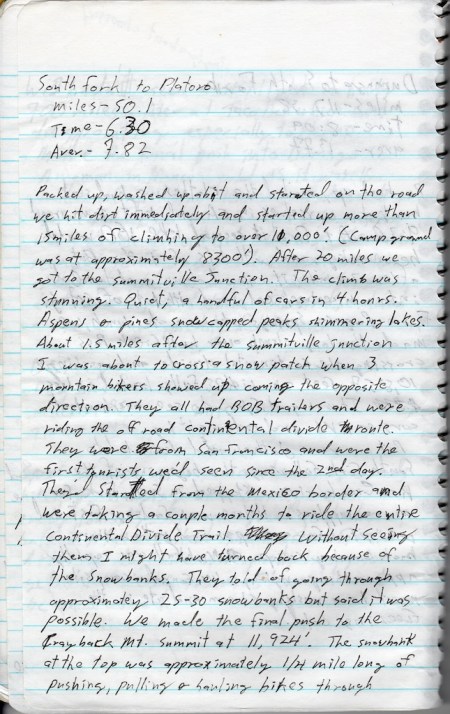 South Fork to Platoro
miles - 50.1
Time - 6.30
Aver. - 7.82
Packed up, washed up abit and starated on the road
we hit dirt immediately and started up more than
15 miles of climbing to over 11,000'. (Campground
was at approximately 8300'). After 20 miles we
got to the Summitville Junction. The climb was
stunning. Quiet, a handful of cars in 4 hours.
Aspens & pines snowcapped peaks shimmering lakes.
About 1.5 miles after the summitville junction
I was about to cross a snow patch when 3
mountain bikers showed up coming the opposite
direction. They all had BOB trailers and were
riding the off road continental divide route.
They were from San Francisco and were the
first tourists we'd seen since the 2nd day.
They'd Started from the Mexico border and
were taking a couple months to ride the entire
Continental Divide Trail. Without seeing
them I might have turned back because of
the snowbanks. They told of going through
approximately 25-30 snowbanks but said it was
possible. We made the final push to the
Grayback Mt. summit at 11,924'. The snowbank
at the top was approximately 1/4 mile long of
pushing, pulling & hauling bikes through